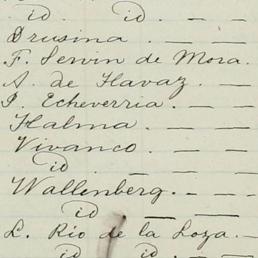 id id - - -
Drusina . - - -
F. Servin de Mora.
A. de Havaz . - -
P. Echeverria . - -
Halma . - - -
Vivanco . - - -
id . - - -
Wallenberg . - -
id - -
L. Rio de la Loza . -
id id - -